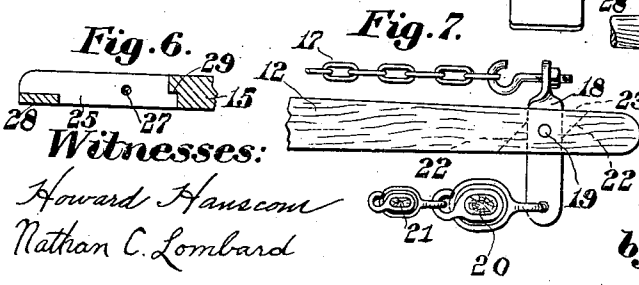 Fig. 6.
29
15
28
25
27
Witnesses:
Howard Hanscom
Nathan C. Lombard
Fig. 7.
28
17
12
18
23
22
22
19
21
20
by